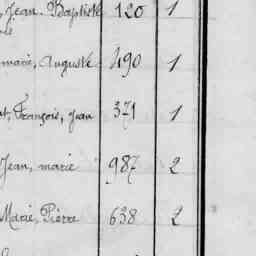 , Jean Baptiste 120 1
marie, Auguste 490 1
, François, Jean 371 1
Jean, marie 987 2
Marie, Pierre 638 2